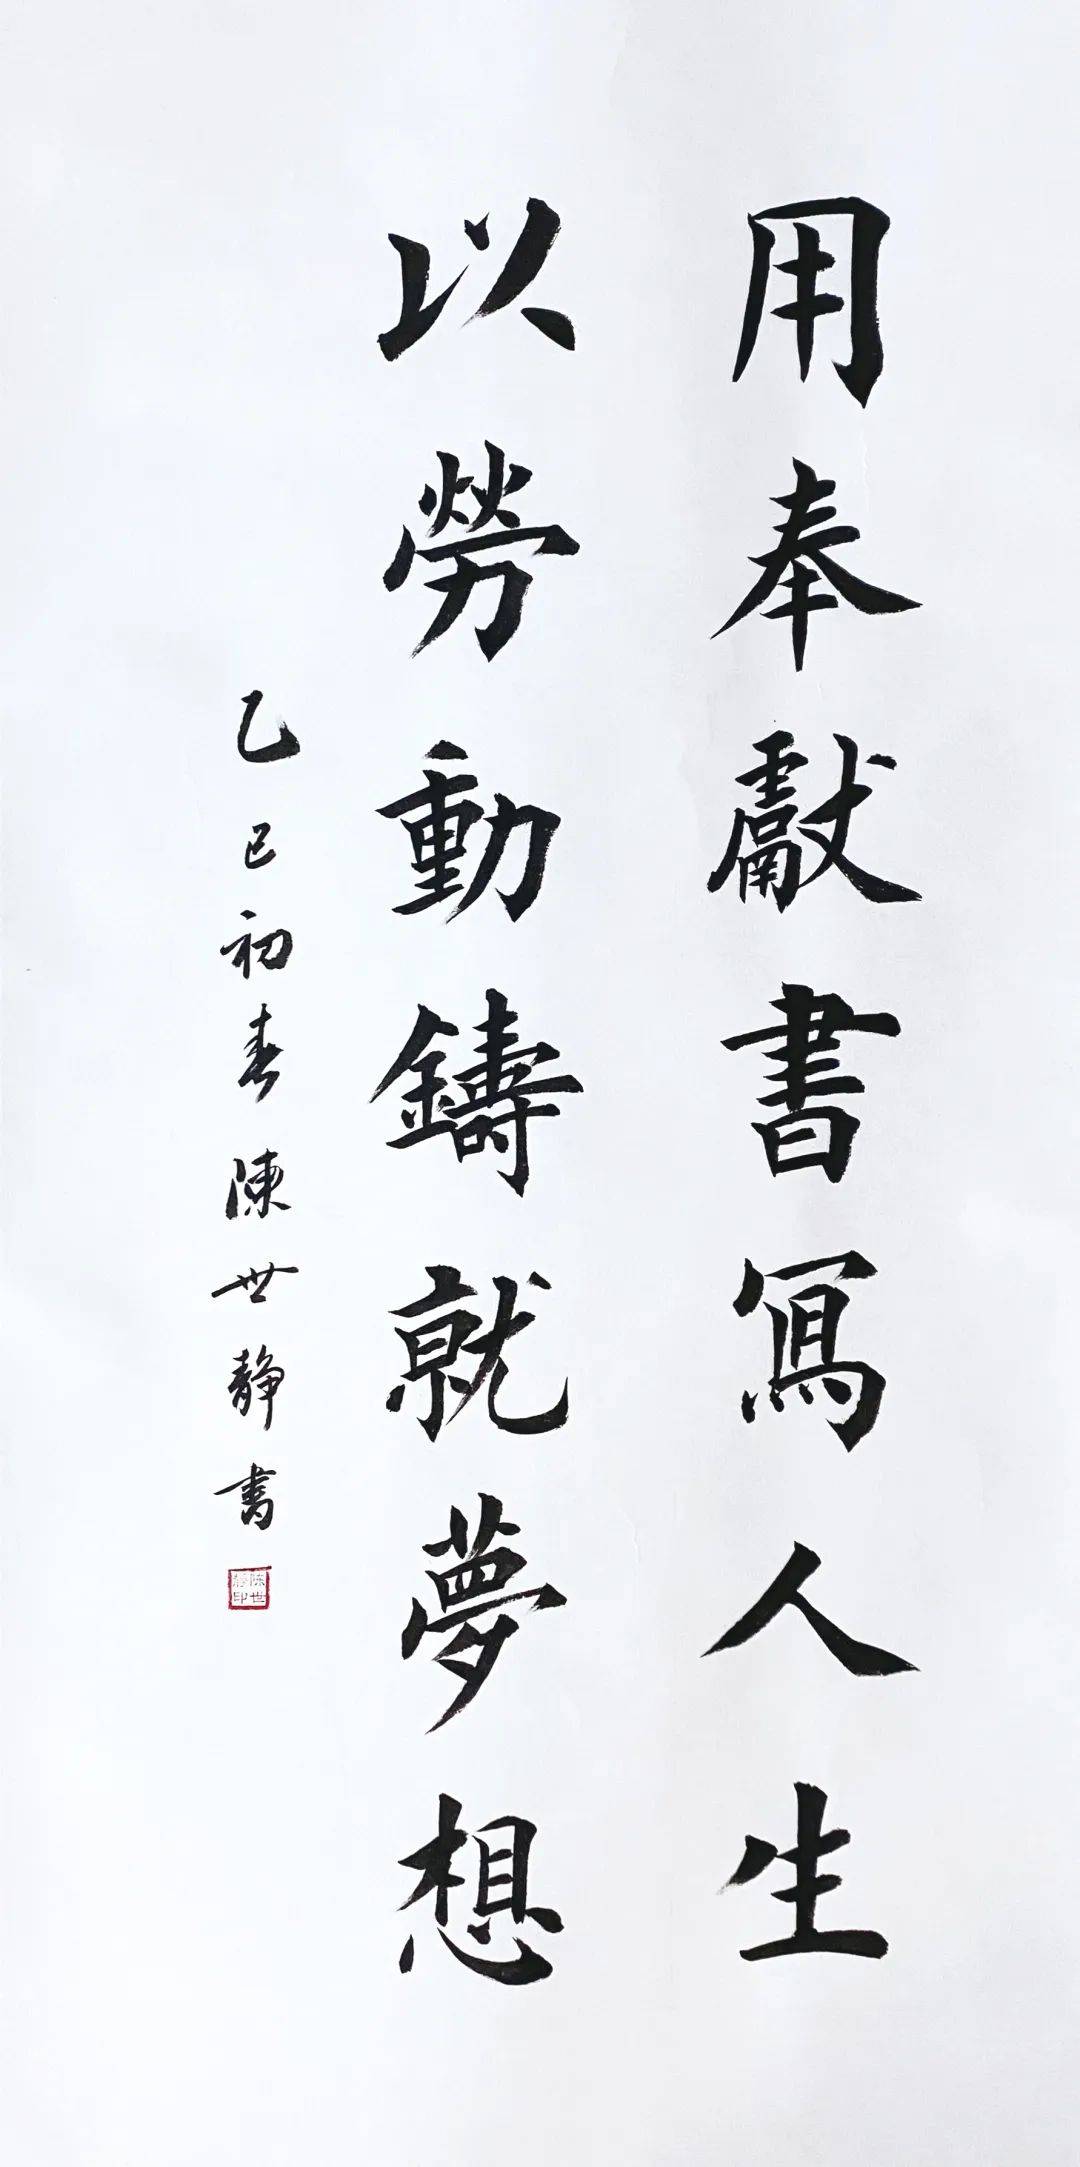 用奉獻書寫人生
以勞動鑄就夢想
乙巳初春陳世靜書
陈世
静印